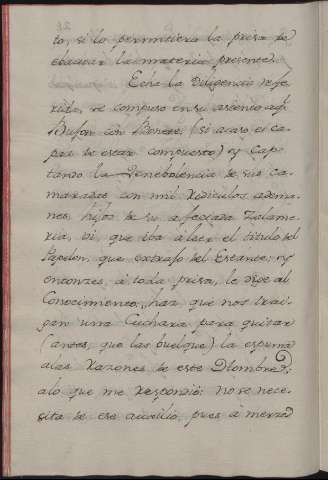 to, si lo permitiera la prisa de
evacuar la materia presente.
Echa la Diligencia refe
rida, se compuso en su asiento aql
Bufon con Bonete (si acaso es ca
paz de estar compuesto) y Cap
tando la Venebolencia de sus ca
maradas con mil ridiculos adema
nes, hijos de su afectada Zalame
ria, vi, que iba à leer el titulo del
Papelon, que extrajo del Estante; y
entonzes, à toda prisa, le dije al
Conocimiento, haz que nos trai
gan una Cuchara para quitar
(antes, que las buelque) la espuma
alas razones de este Hombre;
alo que me respondió: no se nece
sita de ese auxilio, pues à merced